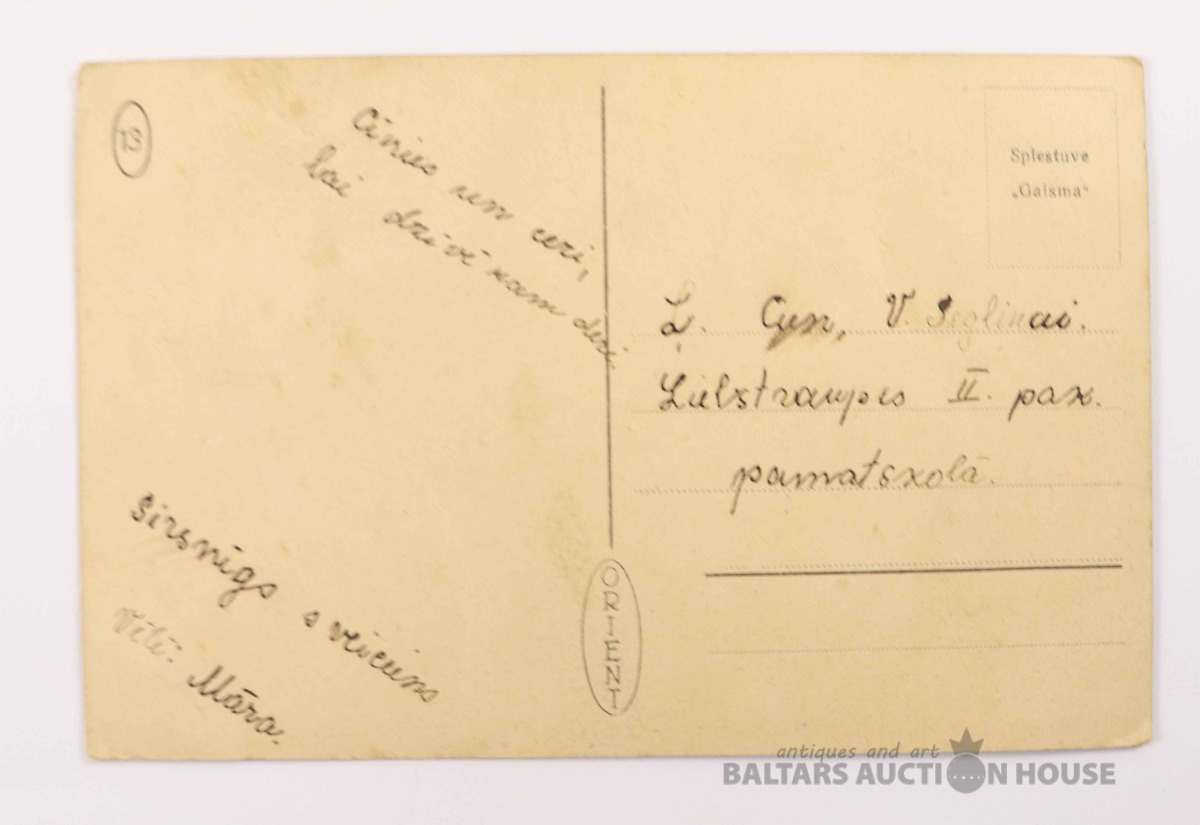 13
Cīnies un ceri,
lai dzīvē kam deri.
Sirsnīgs sveiciens
Vēlē: Māra.
ORIENT
Spiestuve
„Gaisma“
Ļ. Cien, V. Segliņai.
Lielstraupes II. pak.
pamatskolā.
antiques and art
BALTARS AUCTION HOUSE